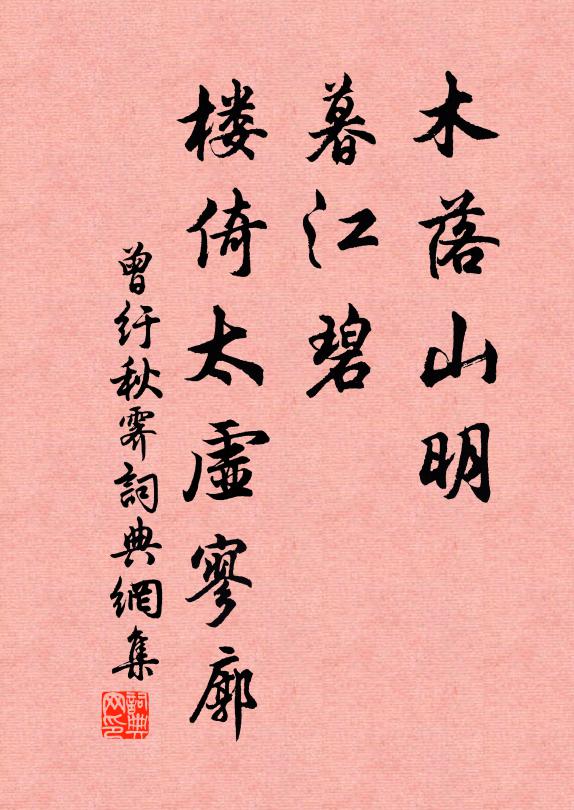 木落山明
暮江碧
楼倚太虚寥廓
曾纡秋霽詞典網集
詞典网印